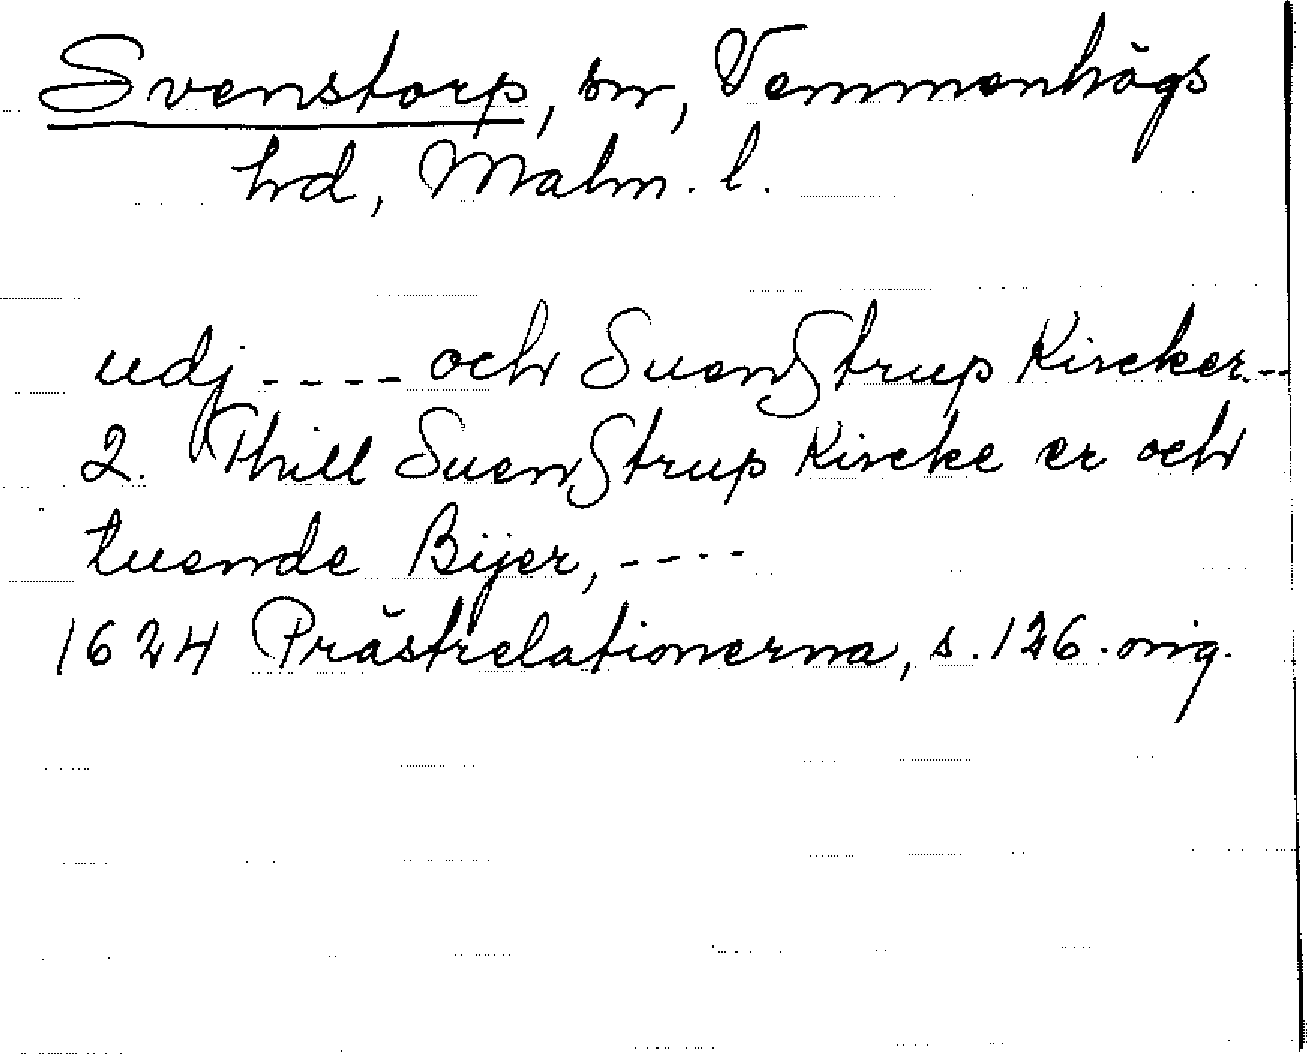 Svenstorp, sn, Vemmenhögs
hd, Malm. l.
udj ---- och SuenStrup Kircker --
2. Thill SuenStrup Kircke er och
tuende Bijer, ----
1624 Prästrelationerna, s. 126. orig.